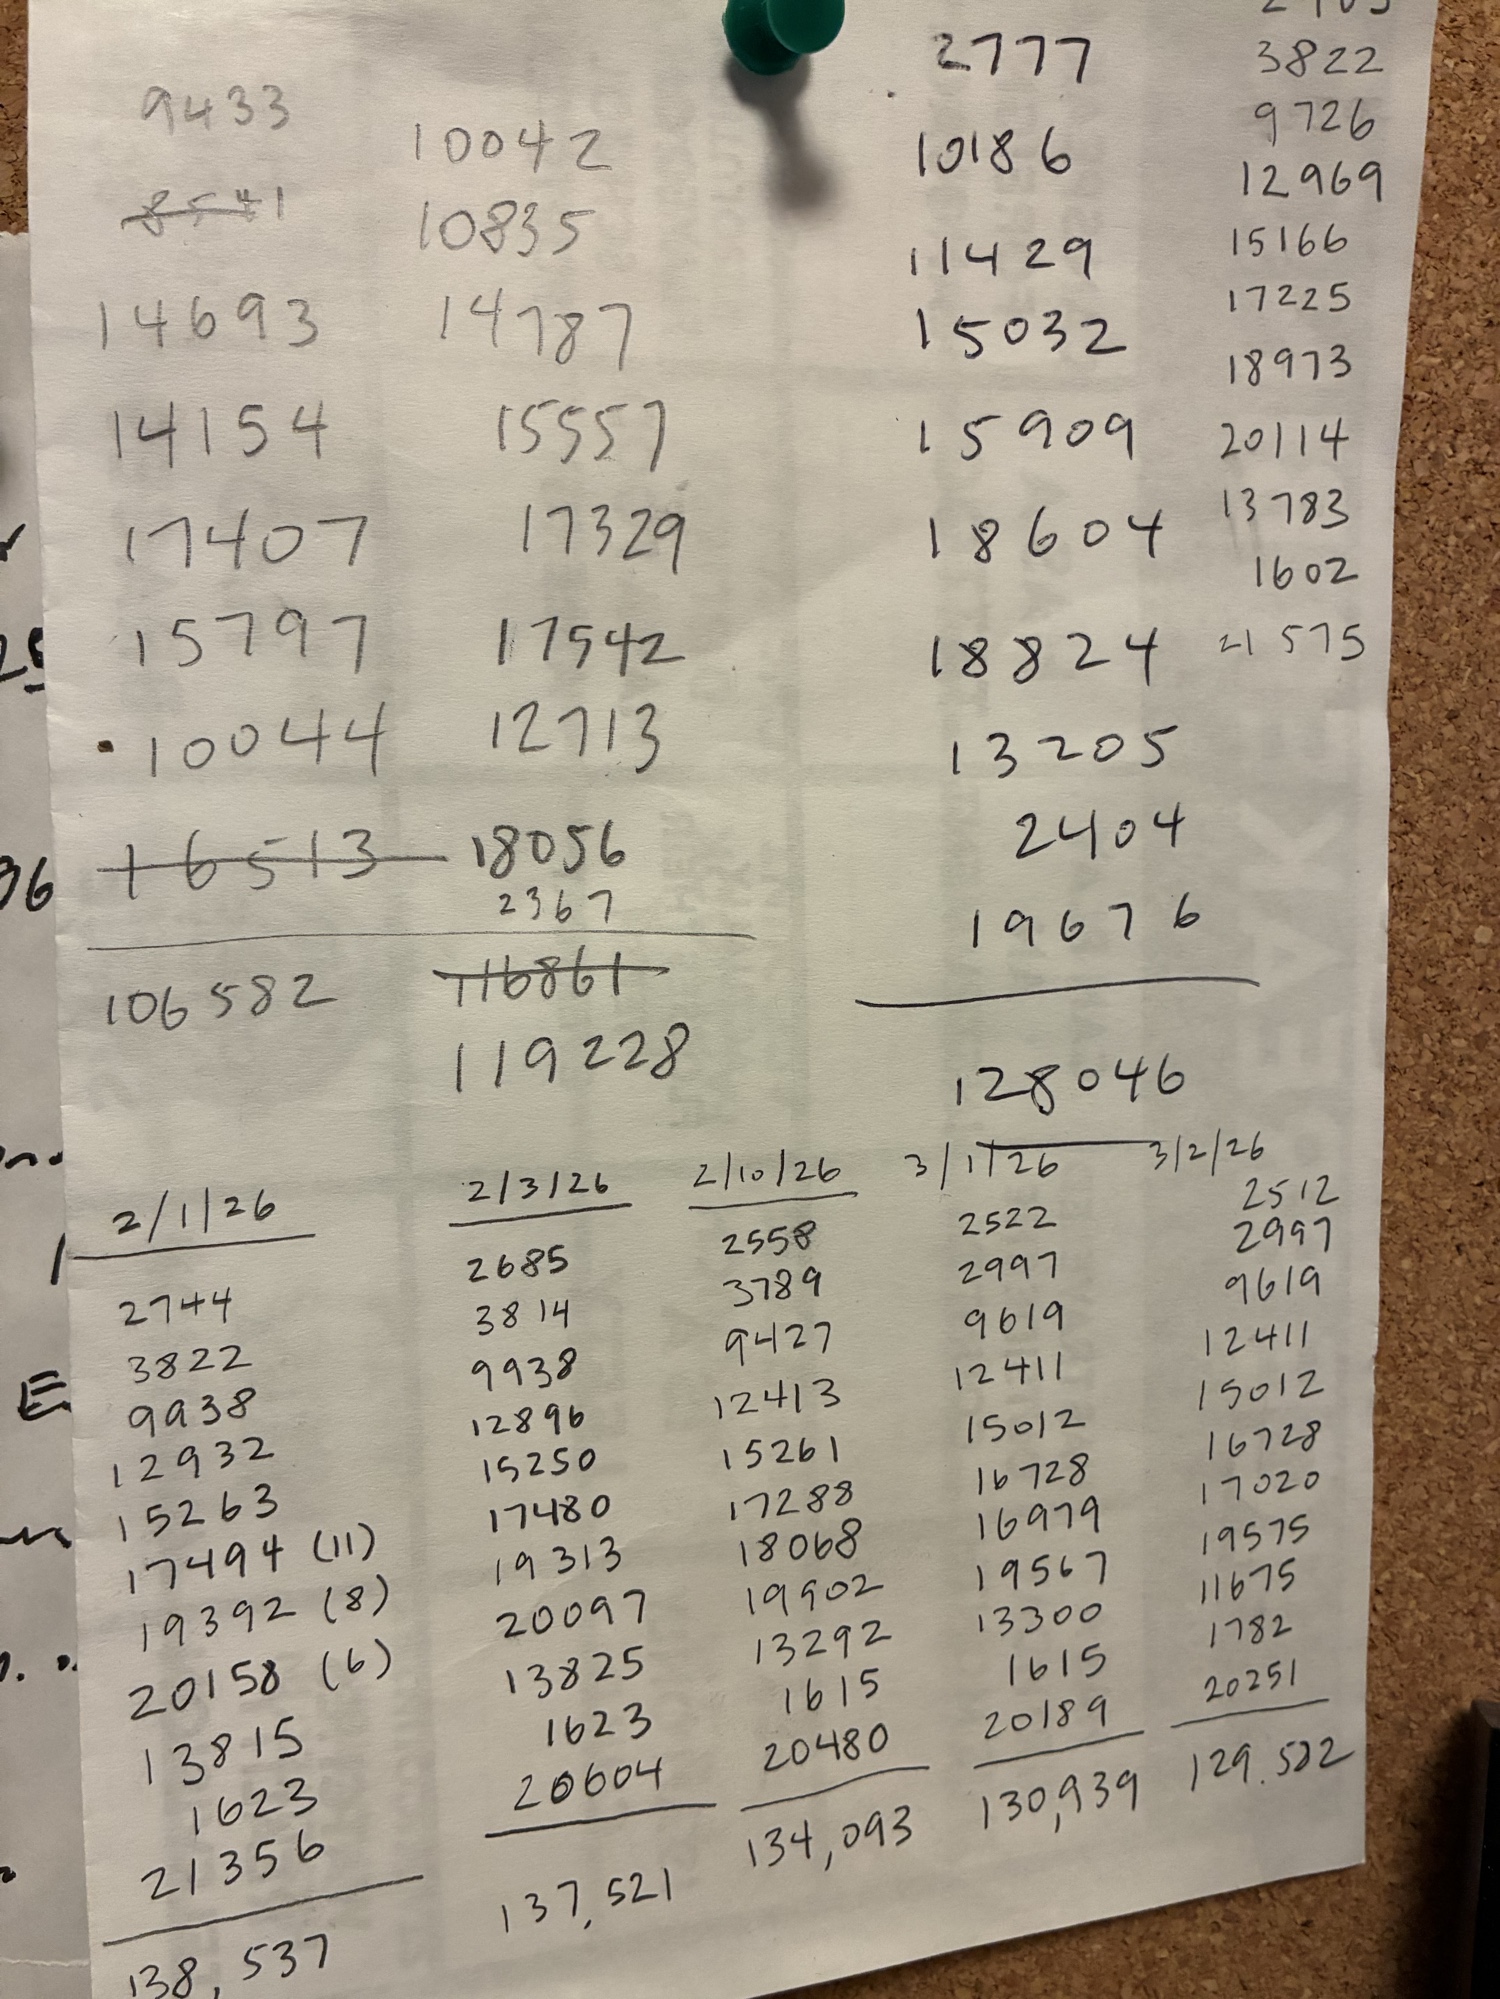 9433
8541
14693
14154
17407
15797
10044
16513
106582
10042
10835
14787
15557
17329
17542
12713
18056
2367
116861
119228
2777
10186
11429
15032
15909
18604
18824
13205
2404
19676
128046
3822
9726
12969
15166
17225
18973
20114
13783
1602
21575
2/1/26
2744
3822
9938
12932
15263
17494 (11)
19392 (8)
20158 (6)
13815
1623
21356
138,537
2/3/26
2685
3814
9938
12896
15250
17480
19313
20097
13825
1623
20604
137,521
2/10/26
2558
3789
9427
12413
15261
17288
18068
19902
13292
1615
20480
134,093
3/1/26
2522
2997
9619
12411
15012
16728
16979
19567
13300
1615
20189
130,939
3/2/26
2512
2997
9619
12411
15012
16728
17020
19575
11675
1782
20251
129.582
36
E